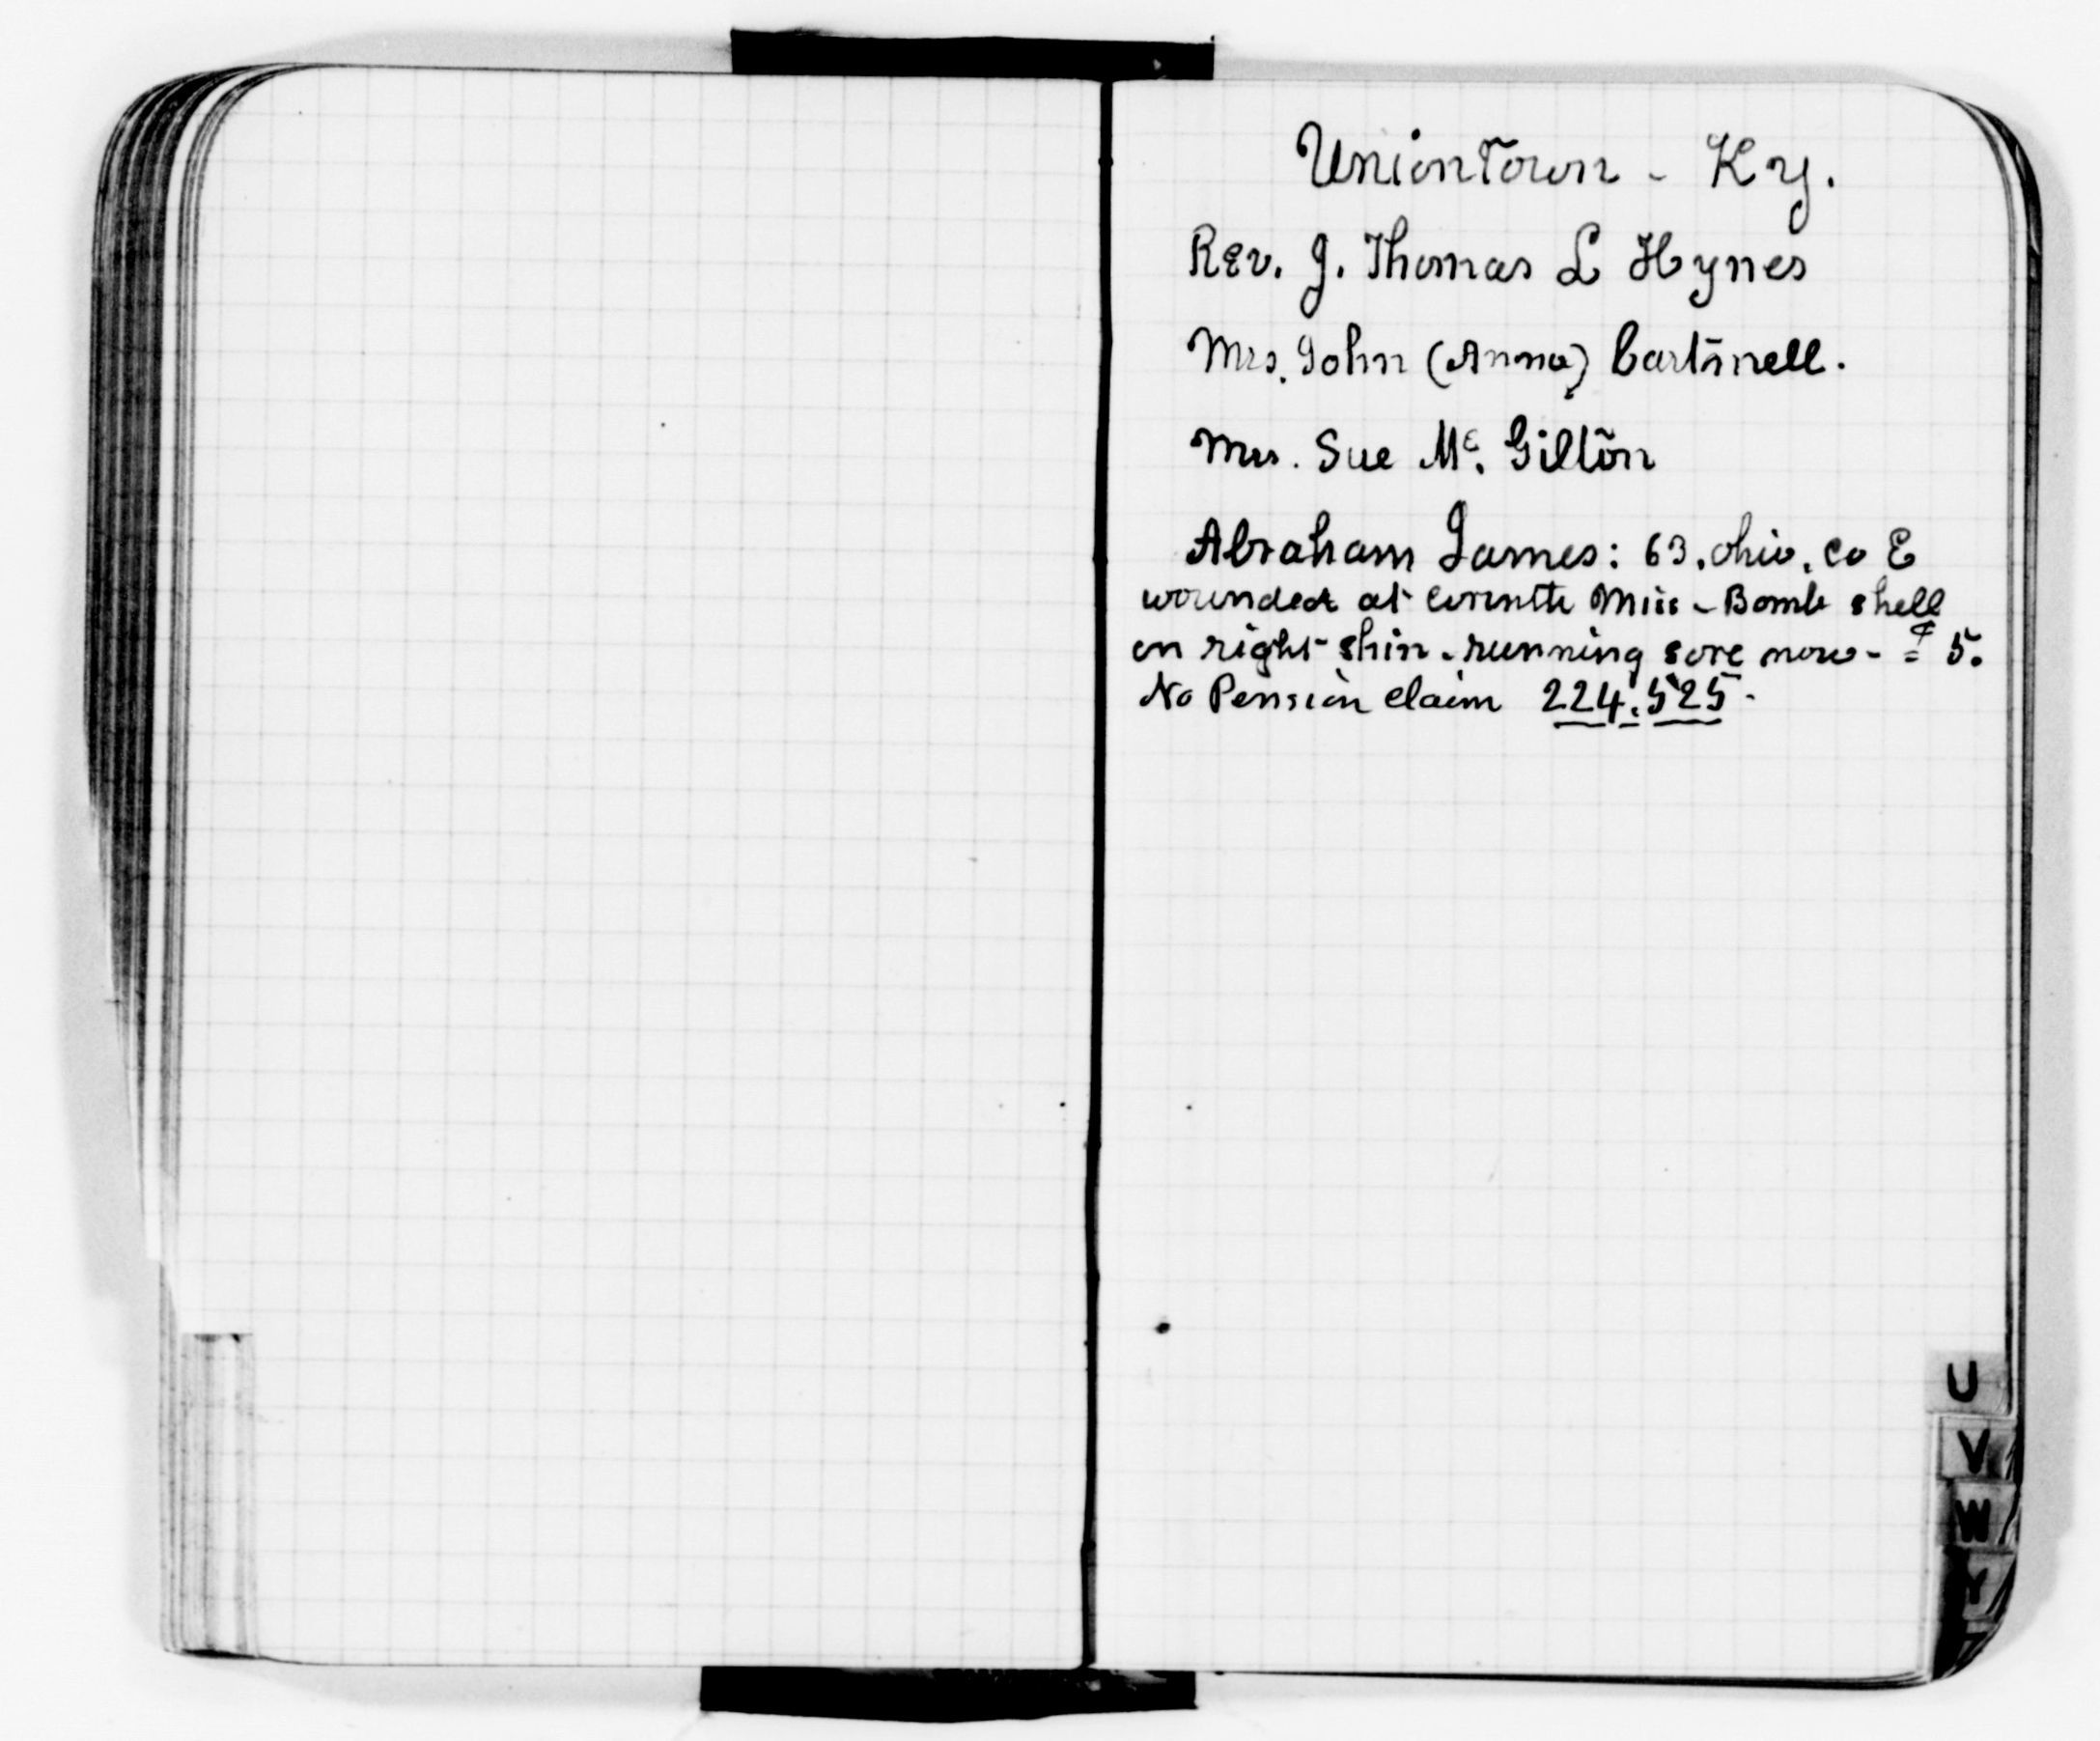 Uniontown - Ky.
Rev. J. Thomas L Hynes
Mrs. John (Anna) Cartinell.
Mrs. Sue Mc. Gilton
Abraham James: 63. Ohio. Co E
wounded at Corinth Miss - Bomb shell
on right shin. running sore now - 5.
No Pension claim 224.525.
U
V
W
Y